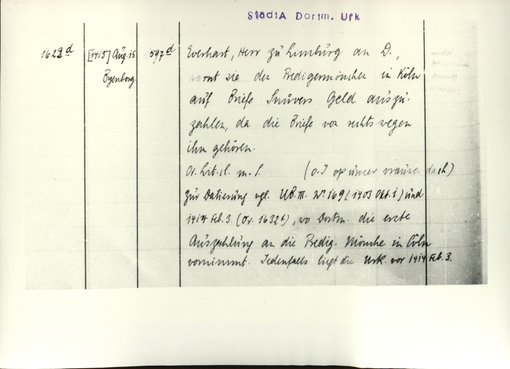 StadtA Dortm. Urk
1623 d [1415] Aug. 15 597 d Everhart, Herr zu Limburg an D.,
Eyenborg warnt sie den Predigermönchen in Köln
auf Briefe Snüvers Geld auszu-
zahlen, da die Briefe von rechts wegen
ihm gehören.
Or. m. (o. J op unser vrauwen dach)
Zur Datierung vgl. UB. III. Nr. 169 (1403 Okt. 1) und
1414 Feb. 3. (Or. 1632), wo Dortm. die erste
Auszahlung an die Predig. Mönche in Köln
vornimmt. Jedenfalls liegt die Urk. vor 1414 Feb. 3.